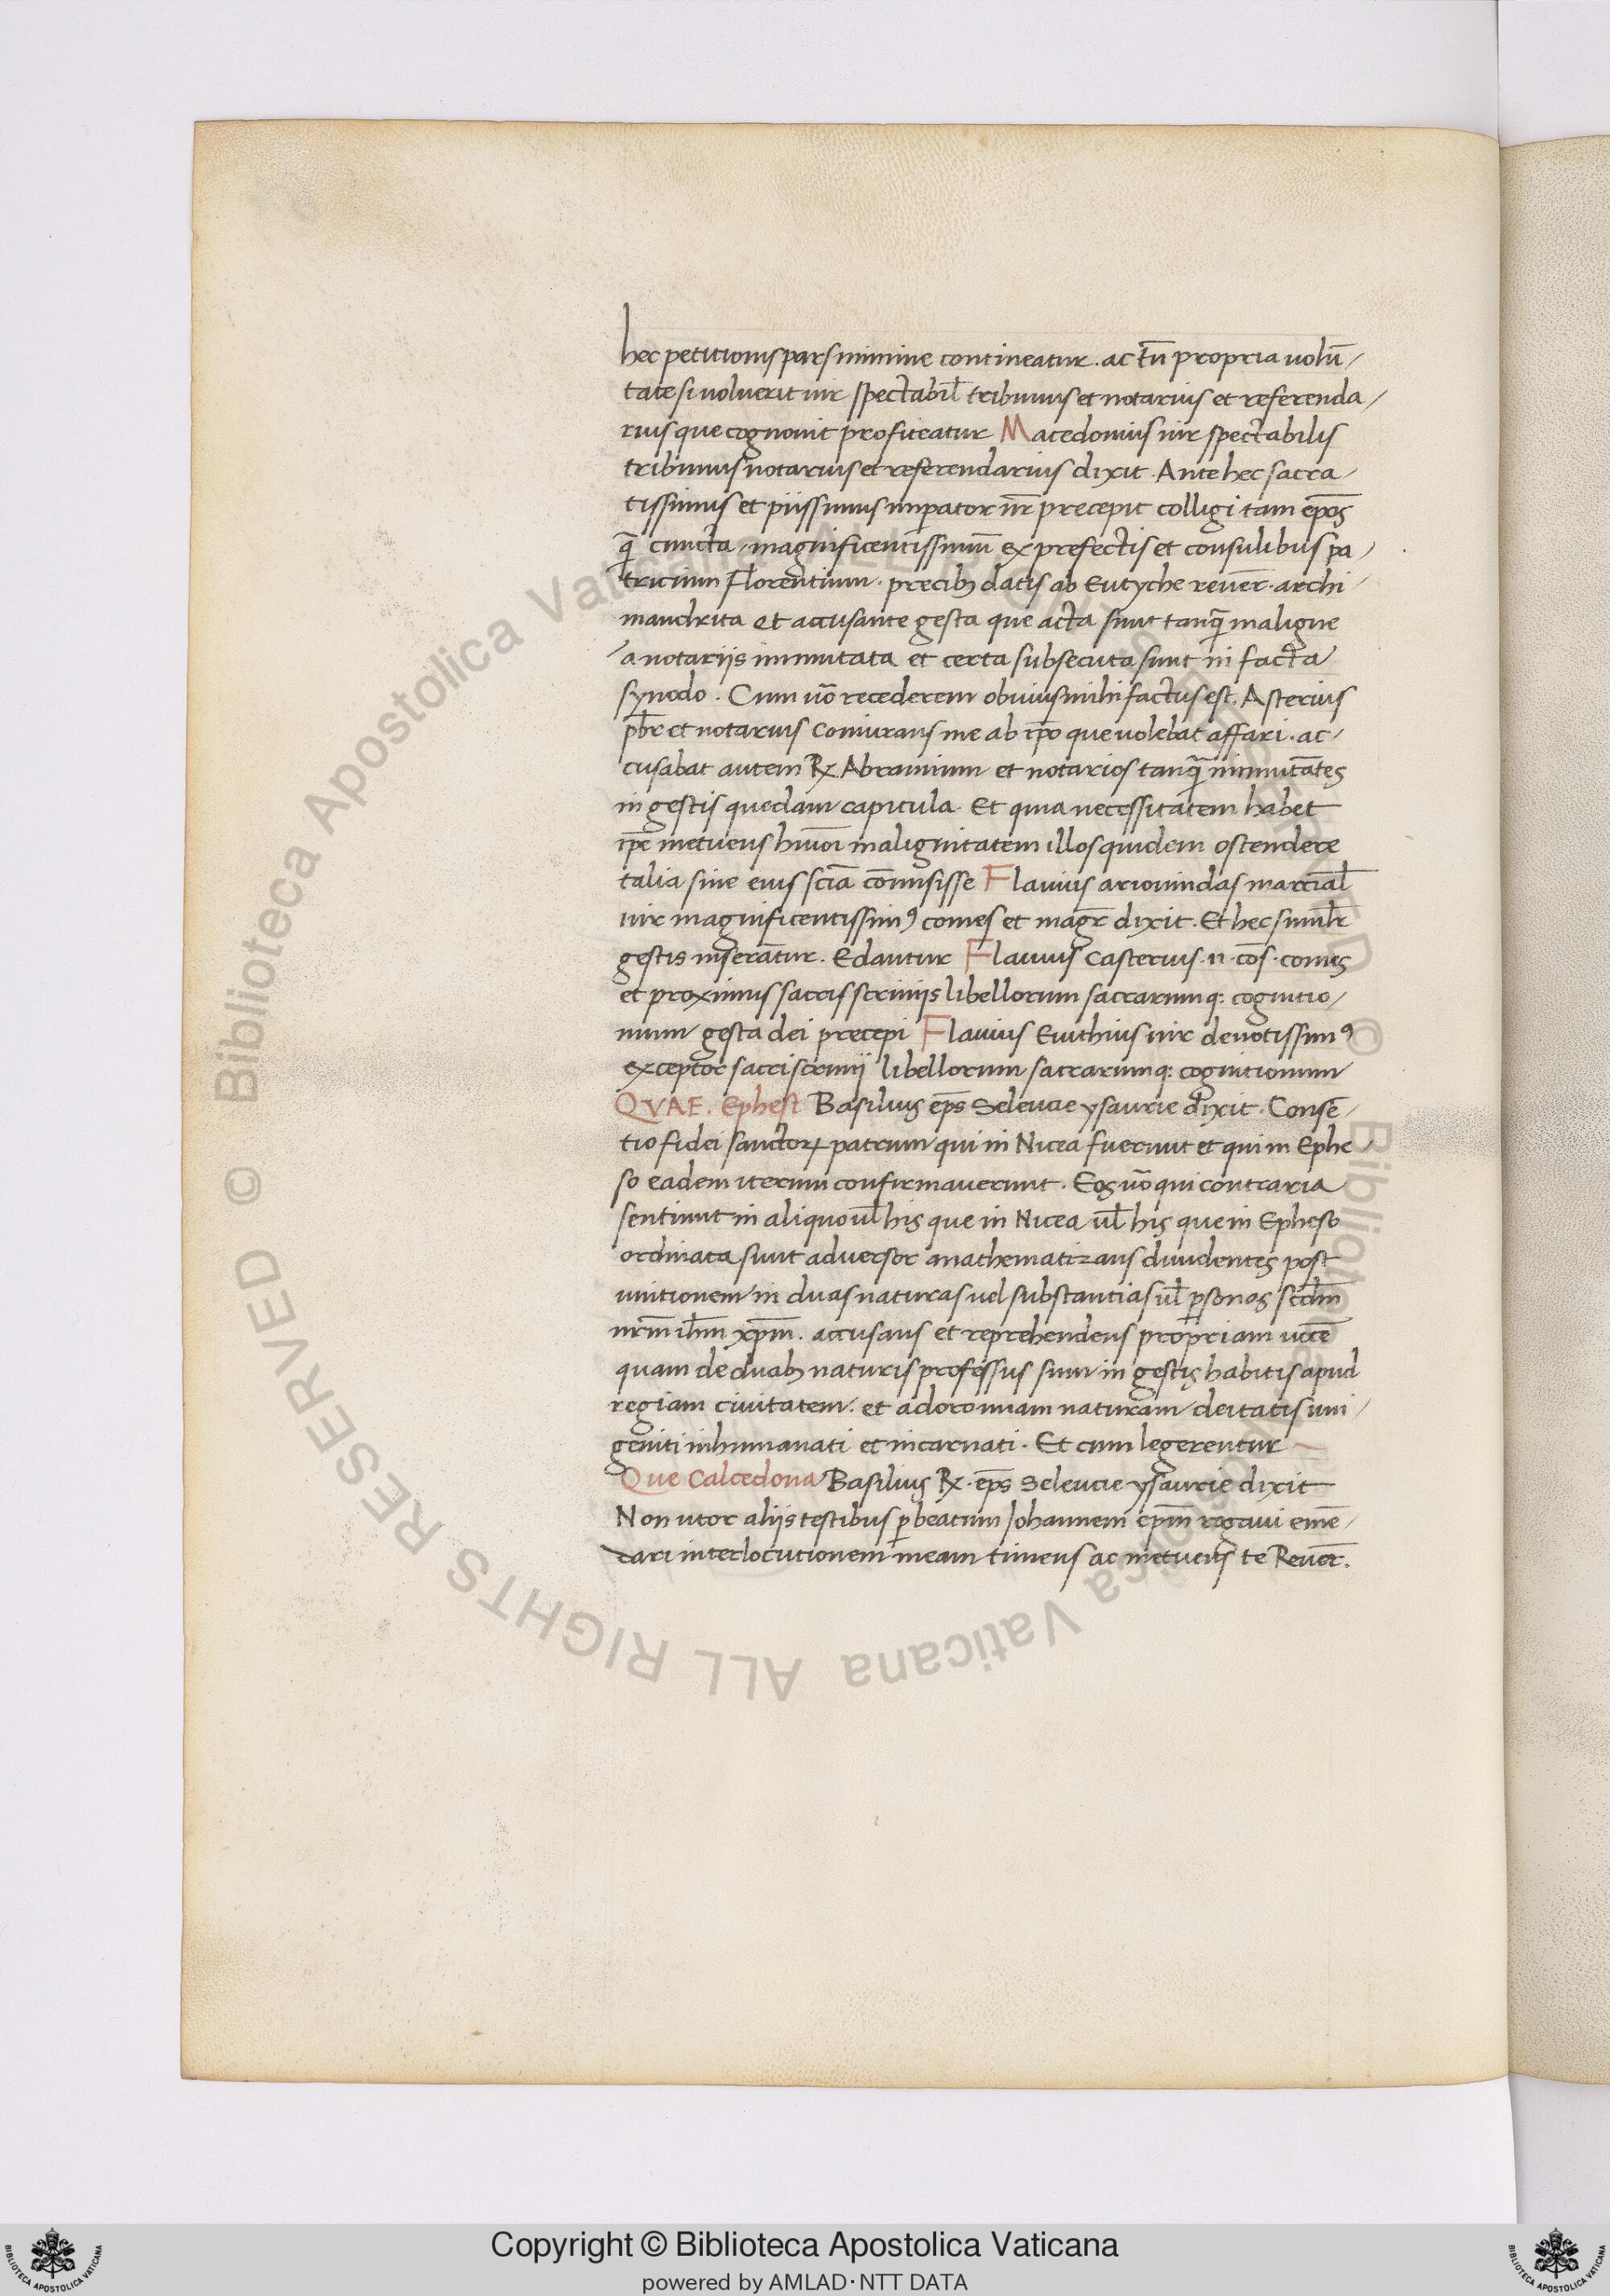 hec petitionis pars minime contineatur. ac tn̄ propria uolū/
tate si uoluerit uir spectabil̄ tribunus et notarius et referenda/
rius que cognouit profiteatur Macedonius uir spectabilis
tribunus notarius et referendarius dixit. Ante hec sacra/
tissimus et piissimus imperator nr̄ precepit colligi tam ep̄os
q̄ cuncta magnificentissimū ex prefectis et consulibus pa/
tricium Florentium. precibꝫ datis ab Eutyche reuer̄. archi/
mandrita et accusante gesta que acta sunt tanq̄ maligne
a notariis immutata et certa subsecuta sunt in facta
synodo. Cum uō recederem obuius mihi factus est. Asterius
pb̄r et notarius coniurans me ab ip̄o que uolebat affari. ac/
cusabat autem ℞ Abramium et notarios tanq̄ inmutātes
in gestis quedam capitula. Et quia necessitatem habet
ip̄e metuens huiōi malignitatem illos quidem ostendere
talia sine eius scīa cōmisisse Flauius ariouindas marcial̄
uir magnificentissimꝰ comes et magr̄ dixit. Et hec simil̄r
gestis inserātur. Edantur Flauius Casterius. n. cōs. comes
et proximus sacris scriniis libellorum sacrarumq: cognitio/
num gesta dei precepi Flauius Euithius uir deuotissimꝰ
exceptor sacri scrinij libellorum sacrarumq: cognitionum
QVAE. Ephesi Basilius ep̄s Seleucie ysaurie dixit. Consē/
tio fidei sanctoꝝ patrum qui in Nicea fuerunt et qui in Ephe/
so eadem iterum confirmauerunt. Eos uō qui contraria
sentiunt in aliquo ul̄ his que in Nicea ul̄ his que in Epheso
ordinata sunt aduersor anathematizans diuidentes post
unitionem in duas naturas uel substantias ul̄ ꝑsonas scd̄m
nrm̄ ih̄m xp̄m. accusans et reprehendens propriam uocē
quam de duabꝫ naturis professus sum in gestis habitis apud
regiam ciuitatem. et adoro unam naturam deitatis uni/
geniti inhumanati et incarnati. Et cum legerentur
Que Calcedona Basilius ℞. ep̄s Seleucie ysaurie dixit
Non utor aliis testibus ꝑ beatum Johannem ep̄m rogaui emē/
dari interlocutionem meam timens ac metuens te Reuer̄.
Copyright © Biblioteca Apostolica Vaticana
powered by AMLAD·NTT DATA